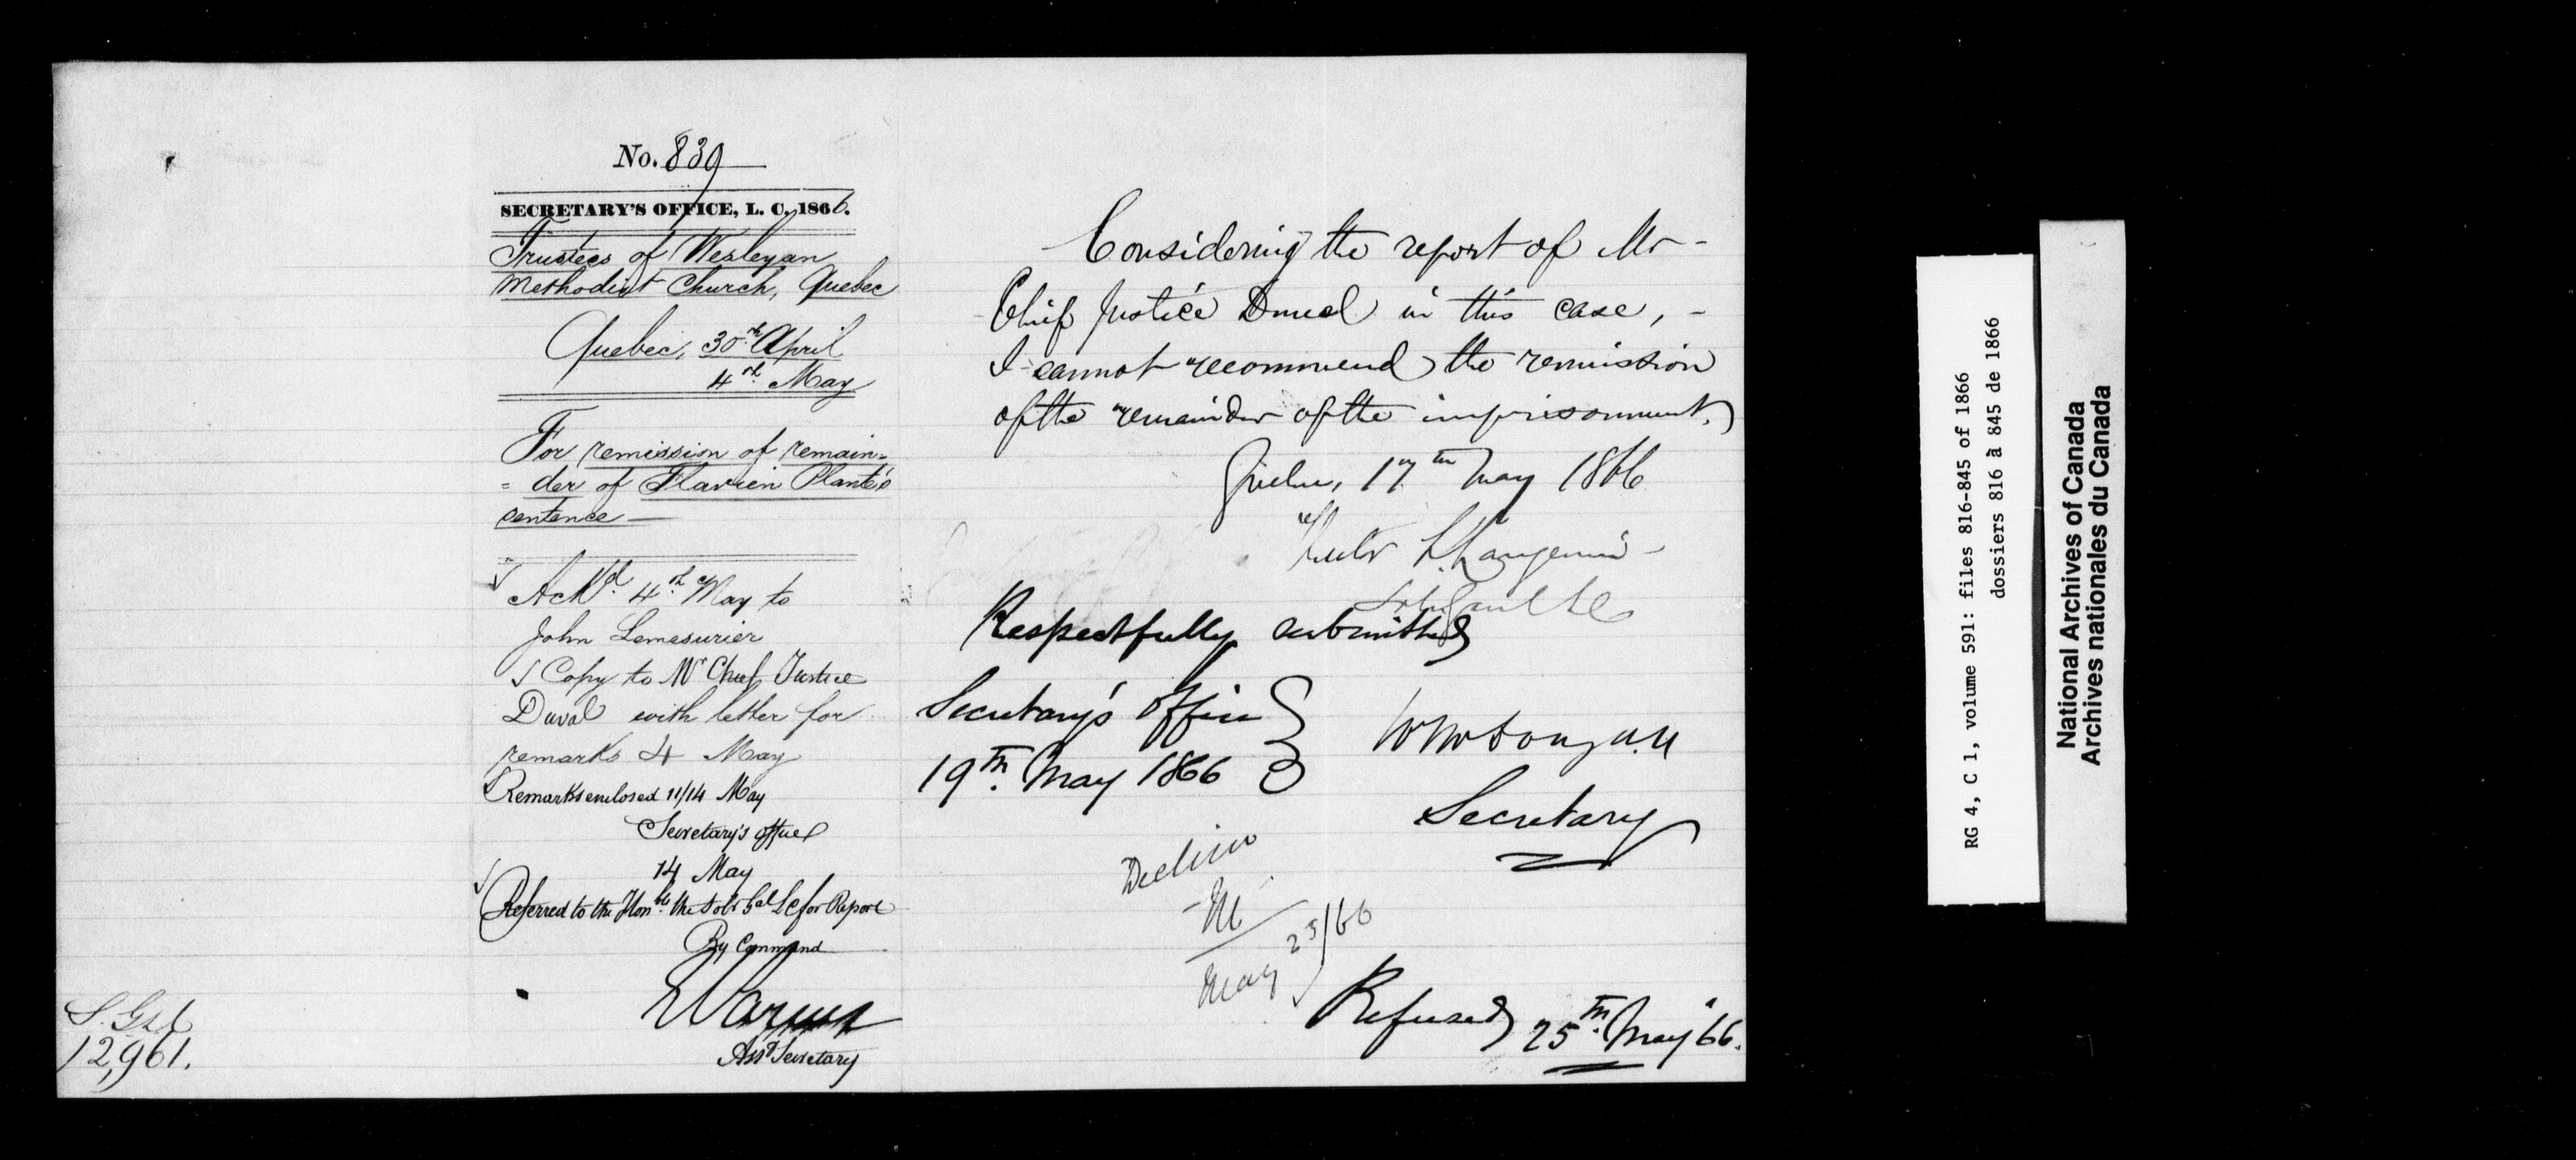 No. 839
SECRETARY'S OFFICE, L. C., 1866.
Trustees of Wesleyan
Methodist Church, Quebec
Quebec, 30th April
4th May
For remission of remain=
=der of Flavien Planté's
sentence —
Ackd. 4th May to
John Lemesurier
Copy to Mr Chief Justice
Duval with letter for
remarks 4 May
Remarks enclosed 11/14 May
Secretary's office
14 May
Referred to the Honble. the Solr Gal LC for Report
By Command
Asst Secretary
S. Gal
12,961.
Considering the report of Mr -
Chief Justice Duval in this case, -
I cannot recommend the remission
of the remainder of the imprisonment.
Quebec, 17th May 1866
Hector L. Langevin -
Respectfully submitted
Secretary's Office
19th. May 1866
W McDougall
Secretary
Decline
M
May 23/66
Refused 25th. May '66.
RG 4, C 1, volume 591: files 816-845 of 1866
dossiers 816 à 845 de 1866
National Archives of Canada
Archives nationales du Canada